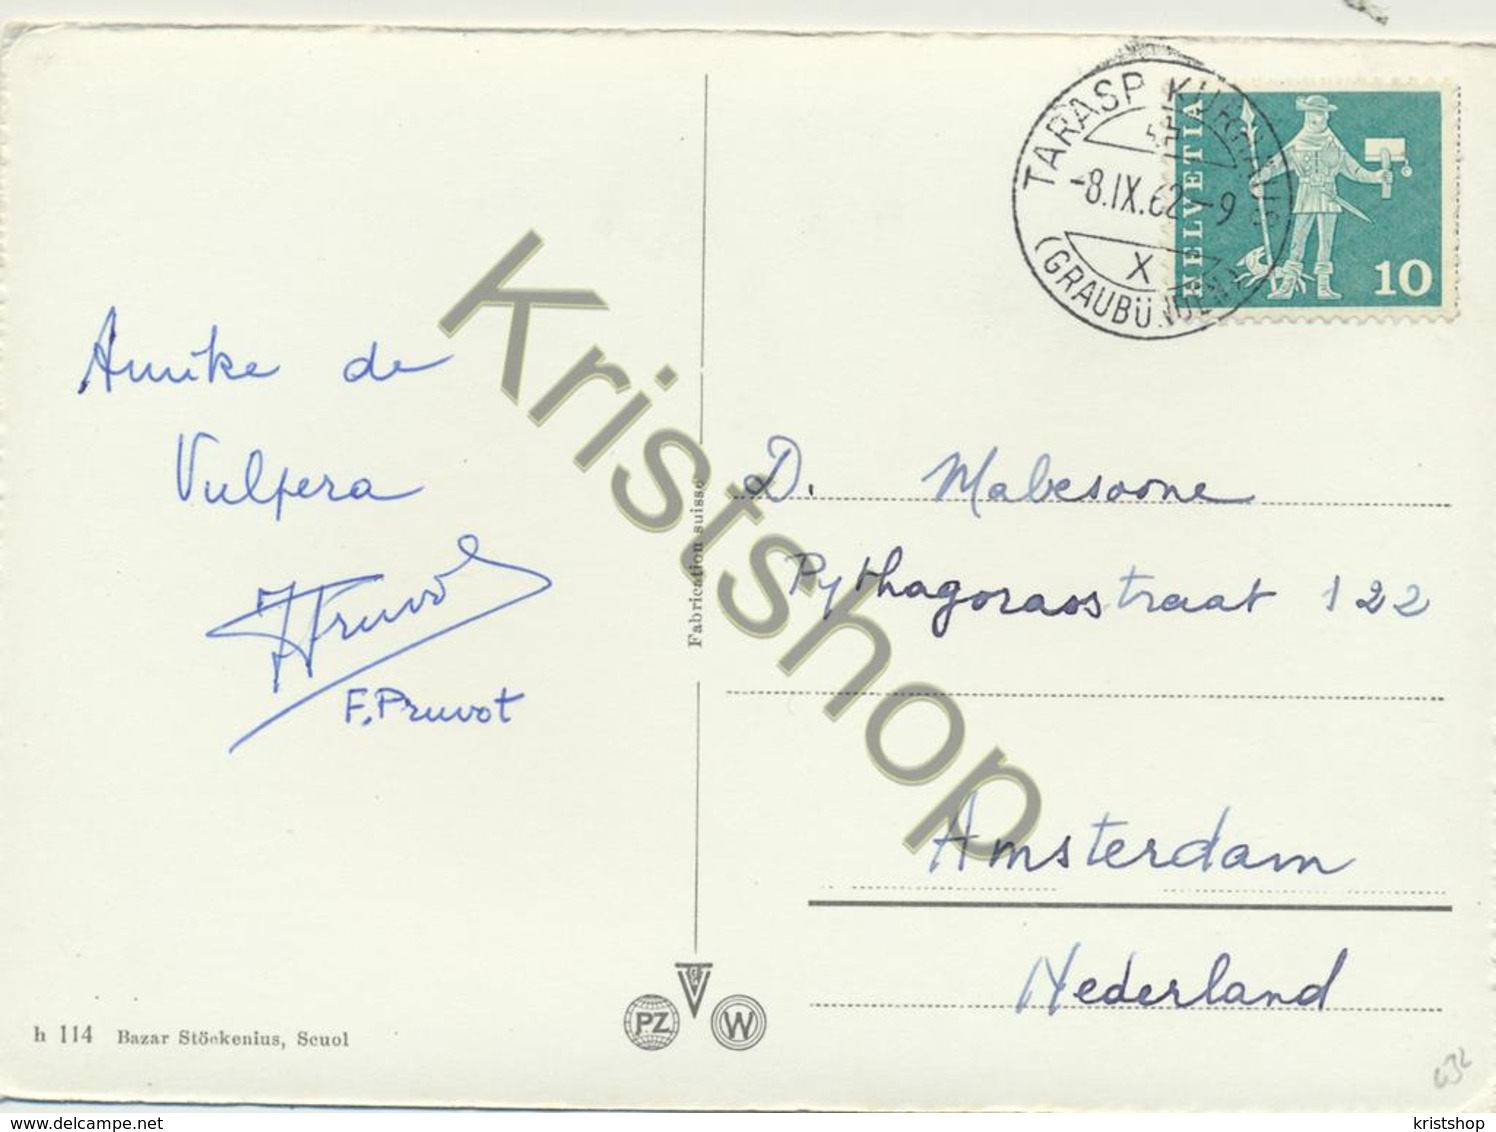 TARASP KURHAUS
-8.IX.62-9
X
(GRAUBÜNDEN)
HELVETIA
10
Amike de
Vulpera
F. Pruvot
Fabrication suisse
D. Mabesoone
Pythagorasstraat 122
Amsterdam
Nederland
PZ
W
h 114 Bazar Stöckenius, Scuol
Kristshop
delcampe.net
kristshop